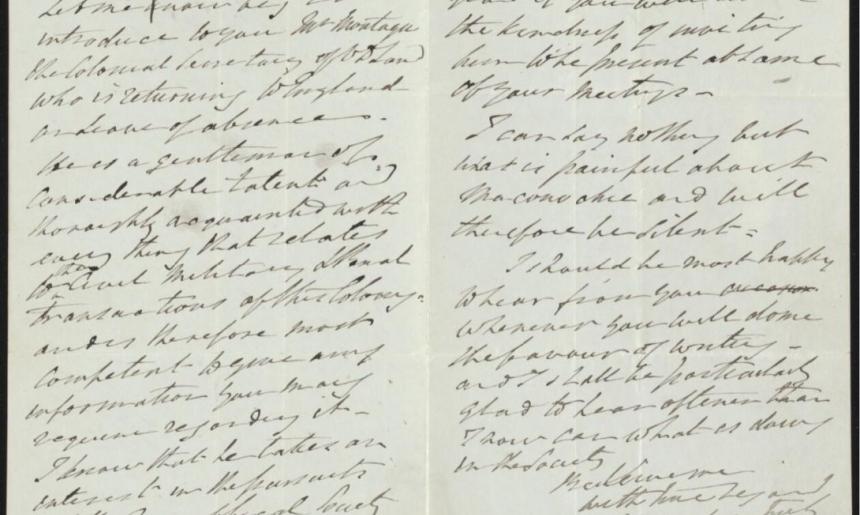 introduce to you Mr Montagu
the Colonial Secretary of V D Land
who is returning to England
on leave of absence.
He is a gentleman of
considerable talent and
thoroughly acquainted with
every thing that relates
to the Civil Military & Penal
transactions of this Colony.
and is therefore most
competent to give any
information you may
require regarding it -
I know that he takes an
interest in the pursuits
Society
the kindness of inviting
him to be present at some
of your Meetings -
I can say nothing but
what is painful about
Maconochie and will
therefore be silent -
I should be most happy
to hear from you
whenever you will do me
the favour of writing -
and I shall be particularly
glad to hear oftener than
I now can what is doing
in the Society
Believe me
with true regard